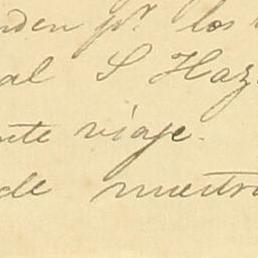 nden pr. los
al S Haz
nte viaje.
de nuestra